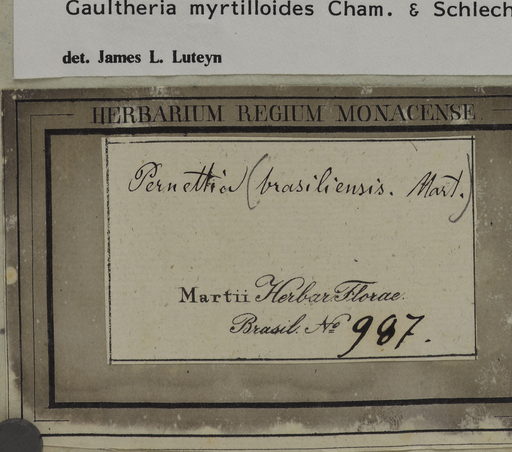 Gaultheria myrtilloides Cham. & Schlech
det. James L. Luteyn
HERBARIUM REGIUM MONACENSE
Pernettia (brasiliensis. Mart.)
Martii Herbar. Florae.
Brasil. No 987.